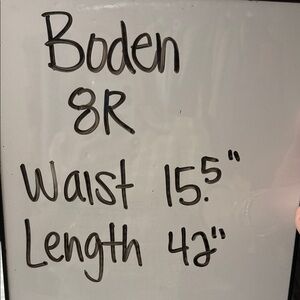 Boden
8R
Waist 15.5"
Length 42"